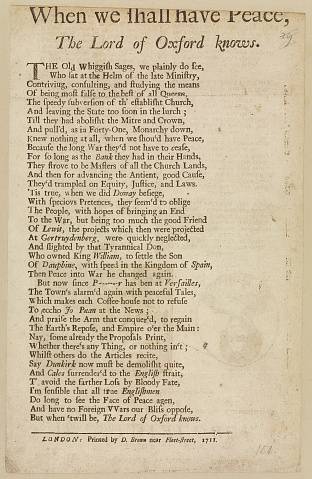 When we ſhall have Peace,
The Lord of Oxford knows.
THE Old Whiggiſh Sages, we plainly do ſee,
Who ſat at the Helm of the late Miniſtry,
Contriving, conſulting, and ſtudying the means
Of being moſt falſe to the beſt of all Queens,
The ſpeedy ſubverſion of th' eſtabliſht Church,
And leaving the State too ſoon in the lurch;
Till they had aboliſht the Mitre and Crown,
And pull'd, as in Forty-One, Monarchy down,
Knew nothing at all, when we ſhou'd have Peace,
Becauſe the long War they'd not have to ceaſe,
For ſo long as the Bank they had in their Hands,
They ſtrove to be Maſters of all the Church Lands,
And then for advancing the Antient, good Cauſe,
They'd trampled on Equity, Juſtice, and Laws.
'Tis true, when we did Doway beſege,
With ſpeciovs Pretences, they ſeem'd to oblige
The People, with hopes of bringing an End
To the War, but being too much the good Friend
Of Lewis, the projects which then were projected
At Gertruydenberg, were quickly neglected,
And ſlighted by that Tyrannical Don,
Who owned King William, to ſettle the Son
Of Dauphine, with ſpeed in the Kingdom of Spain,
Then Peace into War he changed again.
But now ſince P-----r has ben at Verſailles,
The Town's alarm'd again with peaceful Tales,
Which makes each Coffee-houſe not to refuſe
To eccho Jo Pean at the News;
And praiſe the Arm that conquer'd, to regain
The Earth's Repoſe, and Empire o'er the Main:
Nay, ſome already the Propoſals Print,
Whether there's any Thing, or nothing in't;
Whilſt others do the Articles recite,
Say Dunkirk now muſt be demoliſht quite,
And Cales ſurrender'd to the Engliſh ſtrait,
T' avoid the farther Loſs by Bloody Fate,
I'm ſenſible that all true Engliſhmen
Do long to ſee the Face of Peace agen,
And have no Foreign VVars our Bliſs oppoſe,
But when 'twill be, The Lord of Oxford knows.
LONDON: Printed by D. Brown near Fleet-ſtreet, 1711.